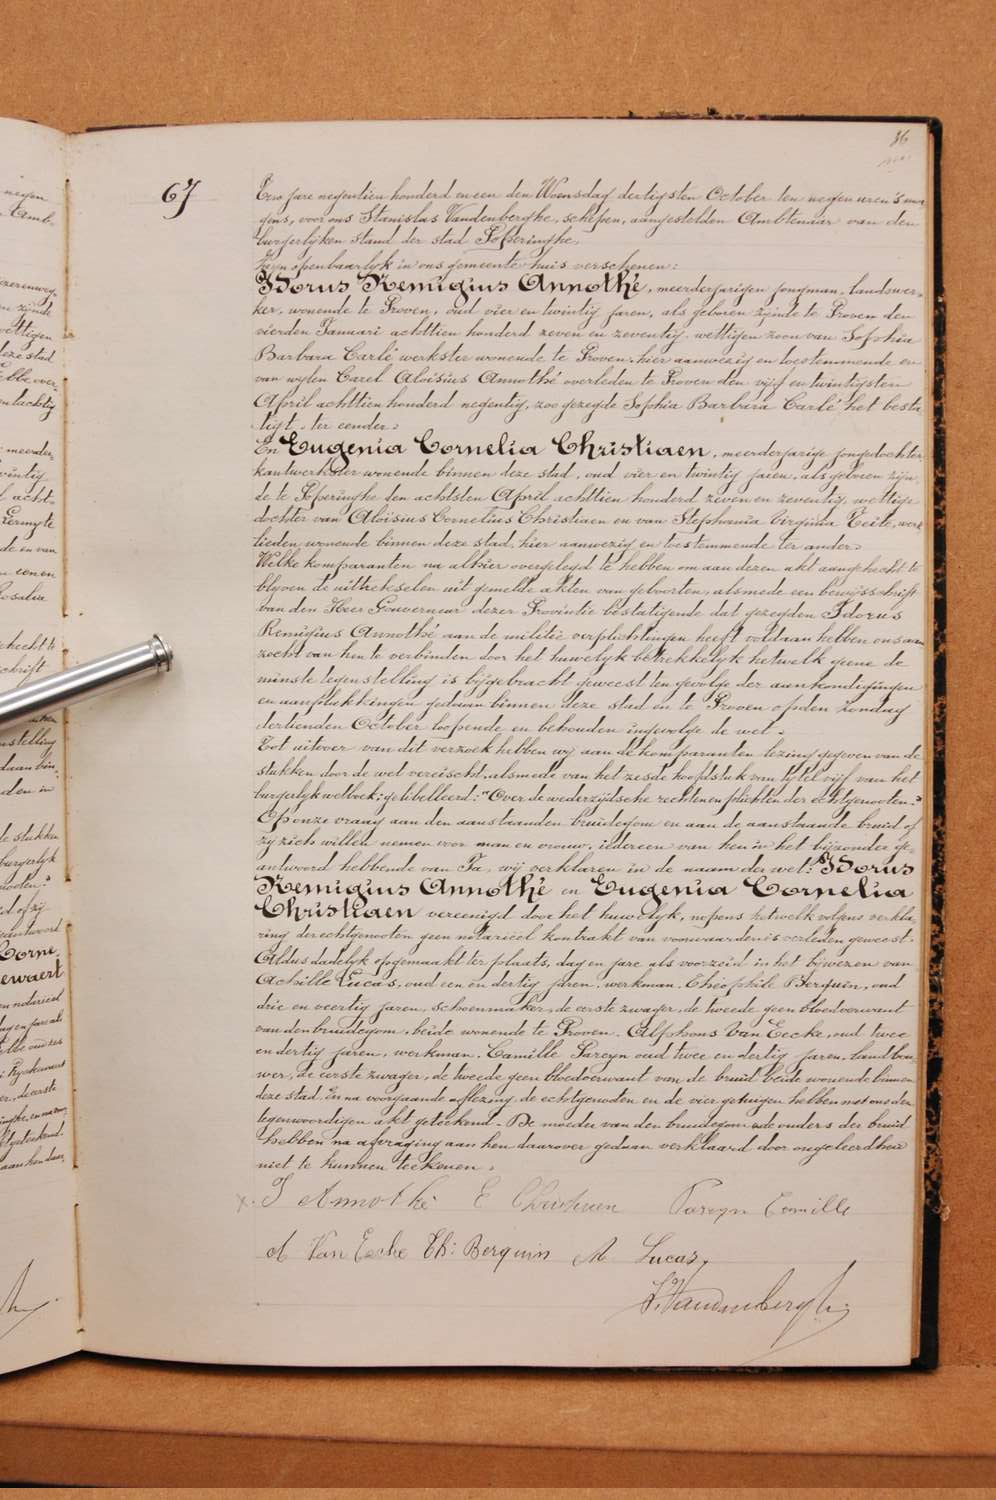 36
67
Een jare negentien honderd en een den Woensdag dertigsten October ten negen uren 's mor
gens, voor ons Stanislas Vandenberghe, schepen, aangestelden Ambtenaar van den
burgerlijken stand der stad Poperinghe,
Zijn openbaarlyk in ons gemeentehuis verschenen:
Idorus Remigius Annothé, meerderjarigen jongman, landswer-
ker, wonende te Proven, oud vier en twintig jaren, als geboren zijnde te Proven den
vierden Januari achttien honderd zeven en zeventig, wettigen zoon van Sophia
Barbara Carlé werkster wonende te Proven, hier aanwezig en toestemmende en
van wylen Carel Aloïsius Annothé overleden te Proven den vijf en twintigsten
April achttien honderd negentig, zoo gezegde Sophia Barbara Carlé het besta
tigt, ter eender.
En Eugenia Cornelia Christiaen, meerderjarige jongedochter,
kantwerkster wonende binnen deze stad, oud vier en twintig jaren, als geboren zijn
de te Poperinghe den achtsten April achttien honderd zeven en zeventig, wettige
dochter van Aloïsius Cornelius Christiaen en van Stephania Virginia Teite, werk
lieden wonende binnen deze stad, hier aanwezig en toestemmende ter ander.
Welke komparanten na alhier overgelegd te hebben om aan dezen akt aangehecht te
blyven de uittrekselen uit gemelde akten van geboorten, alsmede een bewijsschrift
van den Heer Gouverneur dezer Provintie bestatigende dat gezegden Idorus
Remigius Annothé aan de militie verplichtingen heeft voldaan hebben ons aan
zocht van hen te verbinden door het huwelyk betrekkelyk hetwelk geene de
minste tegenstelling is bijgebracht geweest ten gevolge der aankondigingen
en aanplakkingen gedaan binnen deze stad en te Proven op den Zondag
dertienden October loopende en behouden ingevolge de wet.
Tot uitvoer van dit verzoek hebben wy aan de komparanten lezing gegeven van de
stukken door de wet vereischt, alsmede van het zesde hoofdstuk van tytel vijf van het
burgerlyk wetboek, gelibelleerd: "Over de wederzijdsche rechten en plichten der echtgenooten."
Op onze vraag aan den aanstaanden bruidegom en aan de aanstaande bruid of
zy zich willen nemen voor man en vrouw, iedereen van hen in het bijzonder ge-
antwoord hebbende van Ja, wij verklaren in de naam der wet: Idorus
Remigius Annothé en Eugenia Cornelia
Christiaen vereenigd door het huwelyk, nopens hetwelk volgens verkla
ring der echtgenooten geen notarieel kontrakt van voorwaarden is verleden geweest.
Aldus dadelyk opgemaakt ter plaats, dag en jare als voorzeid in het bijwezen van
Achille Lucas, oud een en dertig jaren, werkman, Theophile Berquin, oud
drie en veertig jaren, schoenmaker, de eerste zwager, de tweede geen bloedverwant
van den bruidegom, beide wonende te Proven, Alphons Van Eecke, oud twee
en dertig jaren, werkman, Camille Pareyn oud twee en dertig jaren, landbou
wer, de eerste zwager, de tweede geen bloedverwant van de bruid beide wonende binnen
deze stad. En na voorgaande aflezing de echtgenooten en de vier getuigen hebben met ons den
tegenwoordigen akt geteekend. De moeder van den bruidegom en de ouders der bruid
hebben na afvraging aan hen daarover gedaan verklaard door ongeleerdheid
niet te kunnen teekenen.
I Annothé E Christiaen Pareyn Camille
A Van Eecke Th: Berquin A Lucas,
S. Vandenberghe